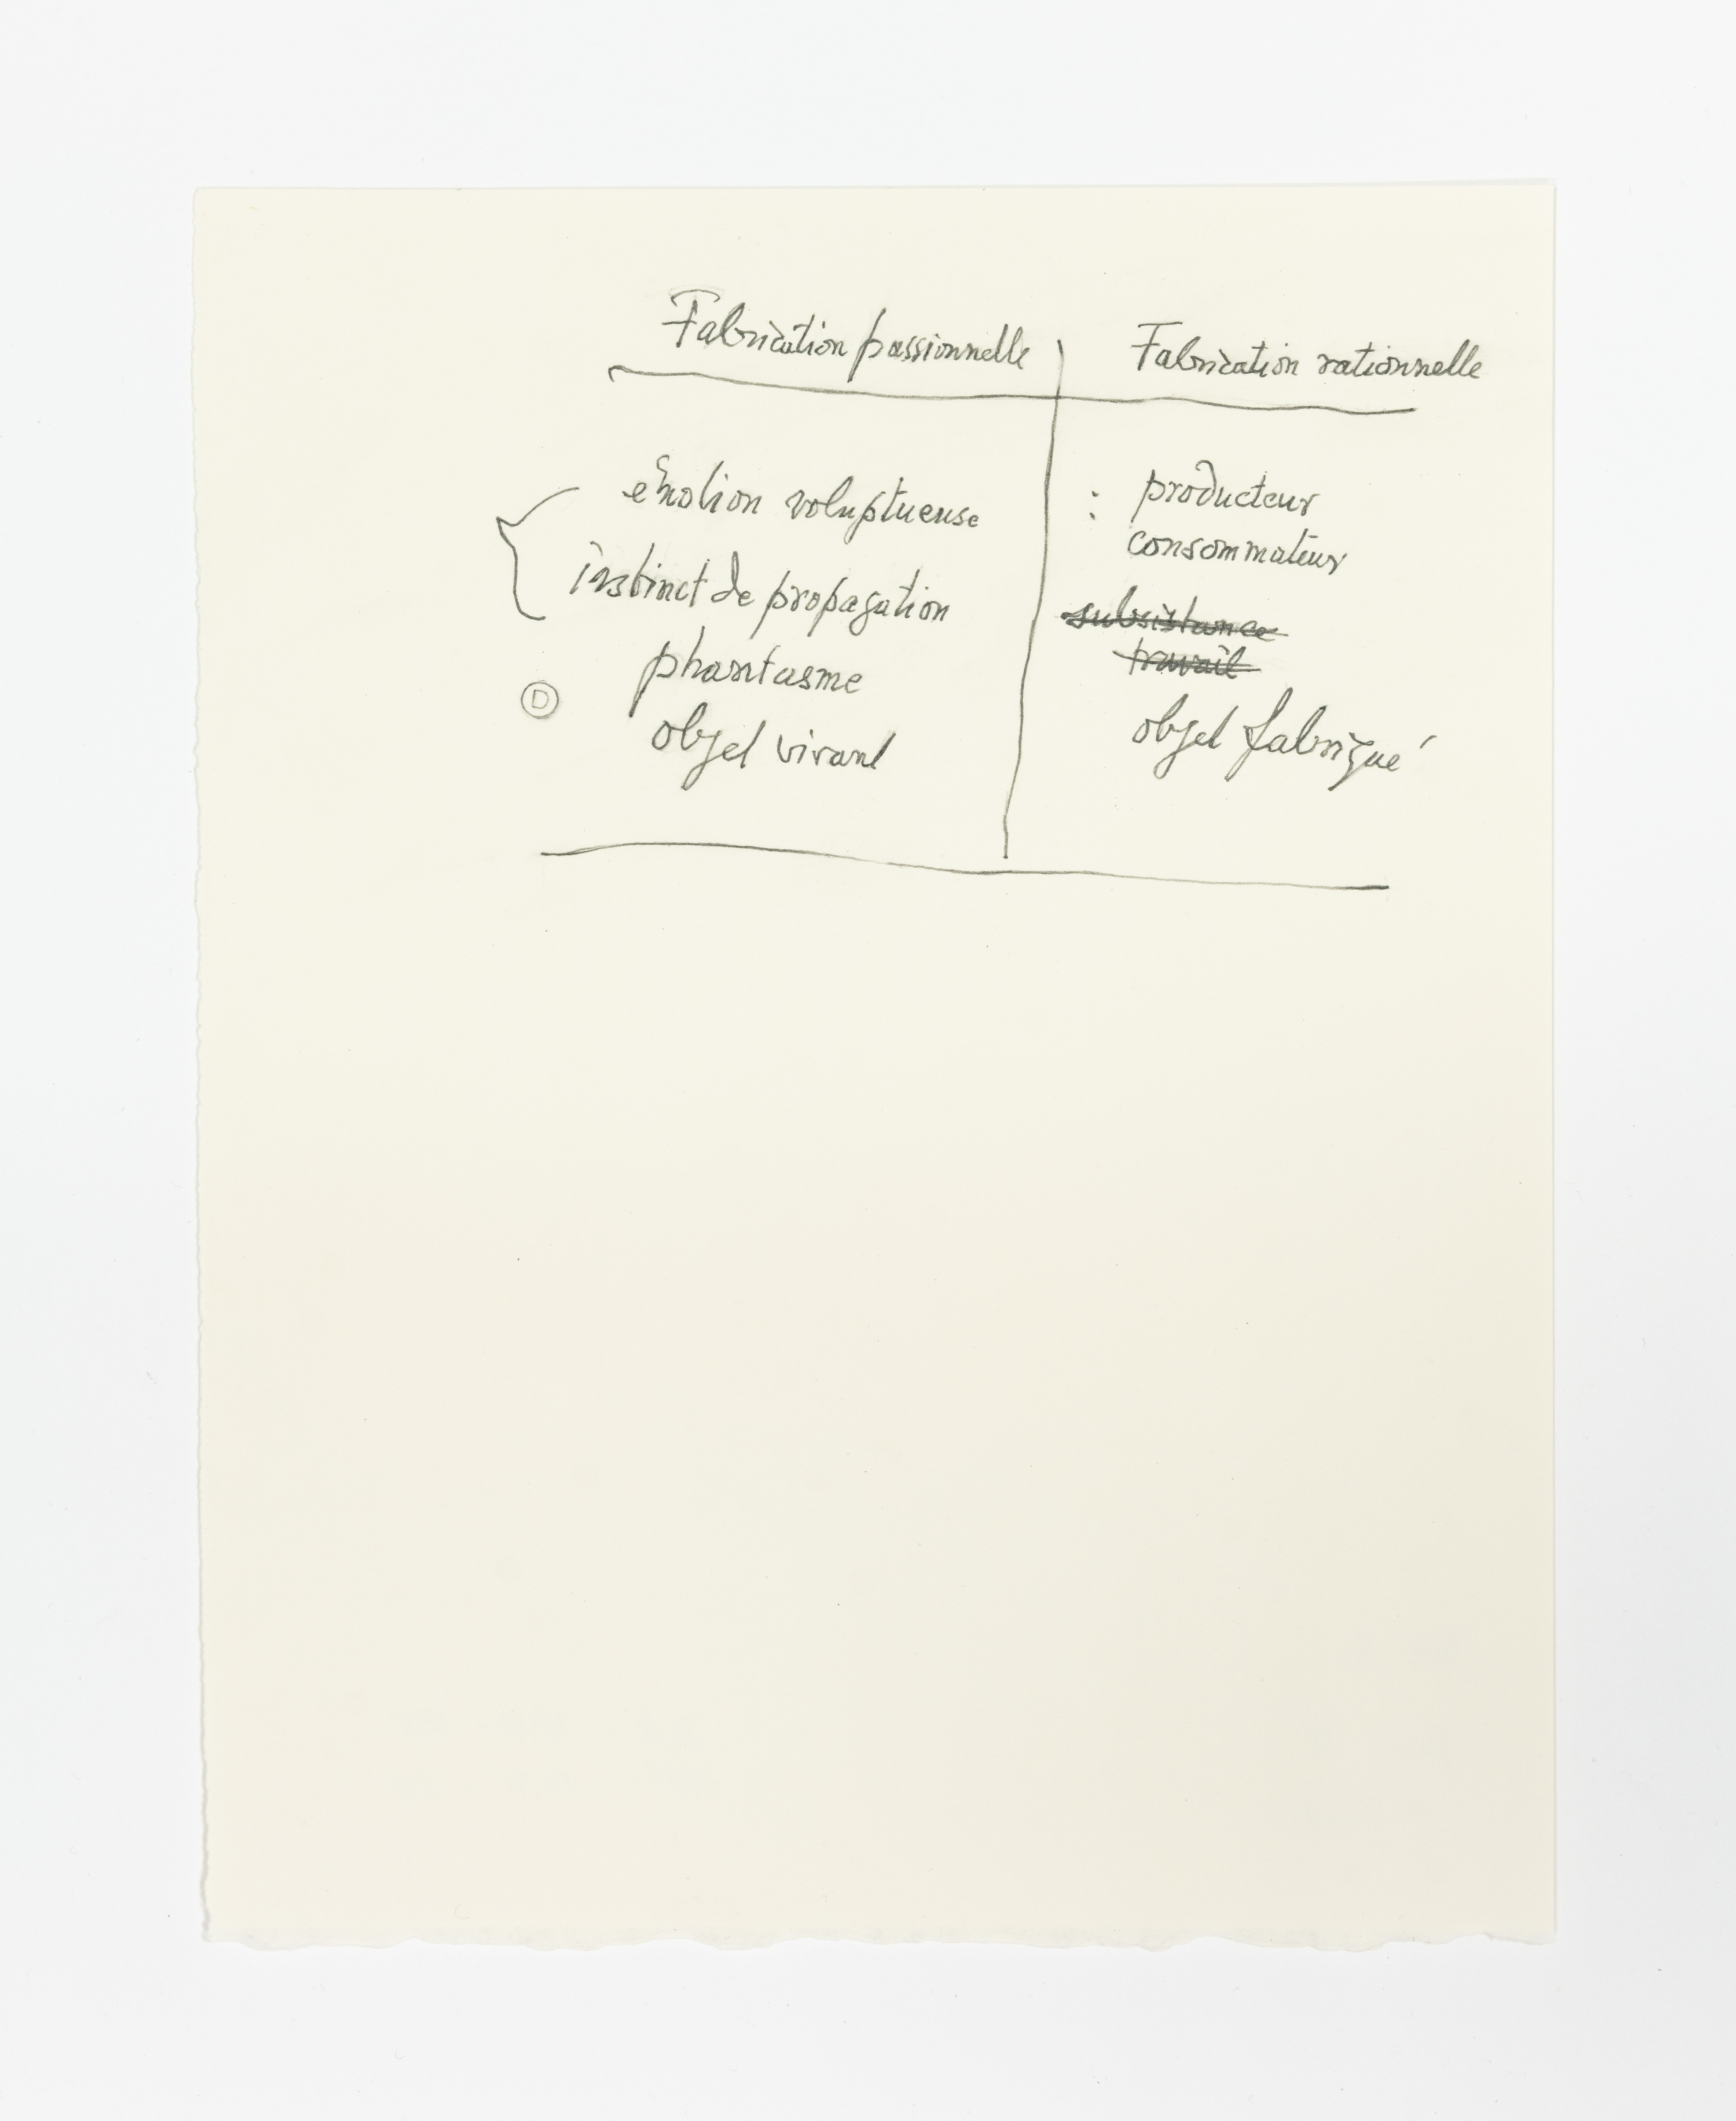 Fabrication passionnelle
Fabrication rationnelle
émotion voluptueuse
instinct de propagation
phantasme
D
objet vivant
: producteur
consommateur
subsistance
travail
objet fabriqué